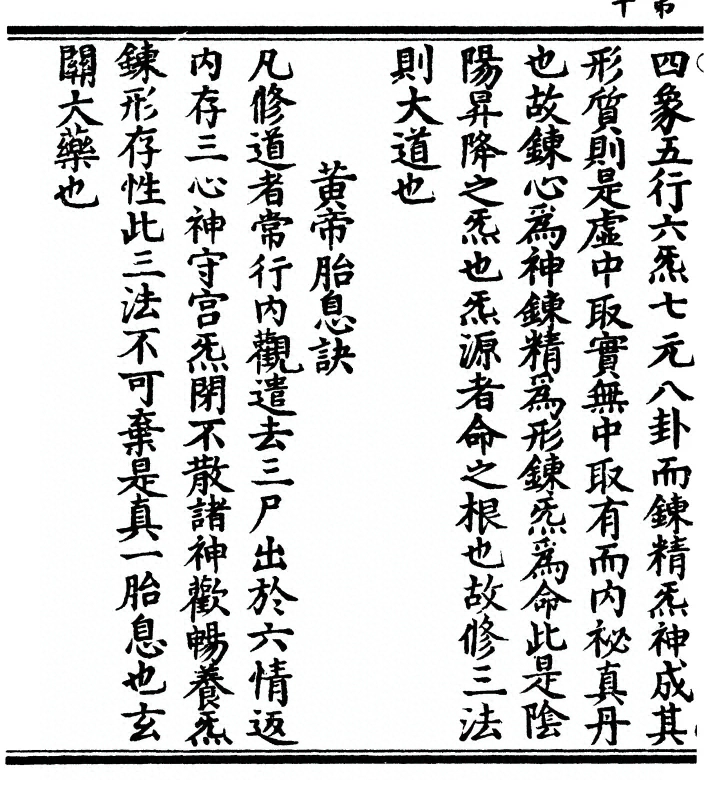 四象五行六炁七元八卦而鍊精炁神成其
形質則是虛中取實無中取有而内祕真丹
也故鍊心爲神鍊精爲形鍊炁爲命此是陰
陽昇降之炁也炁源者命之根也故修三法
則大道也
黃帝胎息訣
凡修道者常行内觀遣去三尸出於六情返
内存三心神守宫炁閉不散諸神歡暢養炁
鍊形存性此三法不可棄是真一胎息也玄
關大藥也